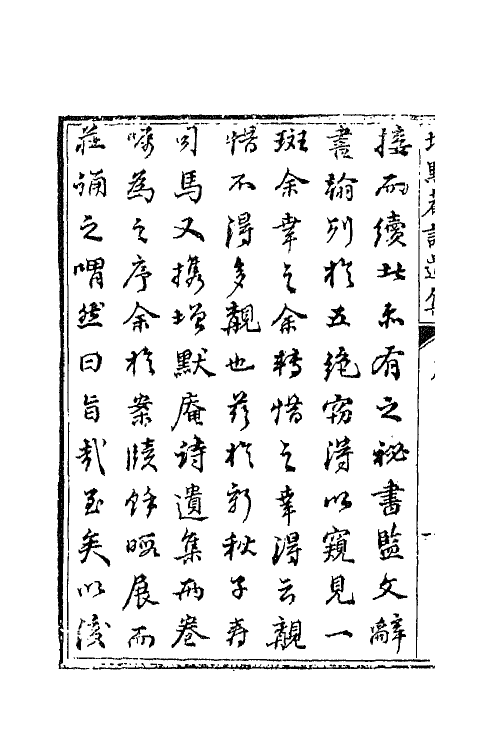 接而續此未有之祕書監文辭
書翰列於五絶竊得以窺見一
斑余幸之余轉惜之幸得云親
惜不得多親也茲於新秋子壽
司馬又攜增默庵詩遺集兩卷
囑為之序余於案牘餘暇展而
莊誦之喟然曰旨哉至矣以濩
增默菴詩遺集